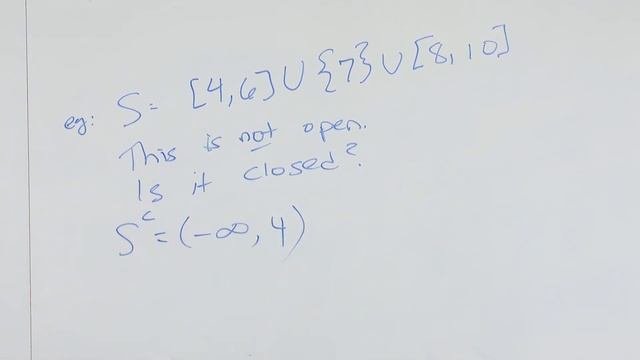 eg: S = [4,6] ∪ {7} ∪ [8,10]
This is not open.
Is it closed?
Sᶜ = (-∞, 4)